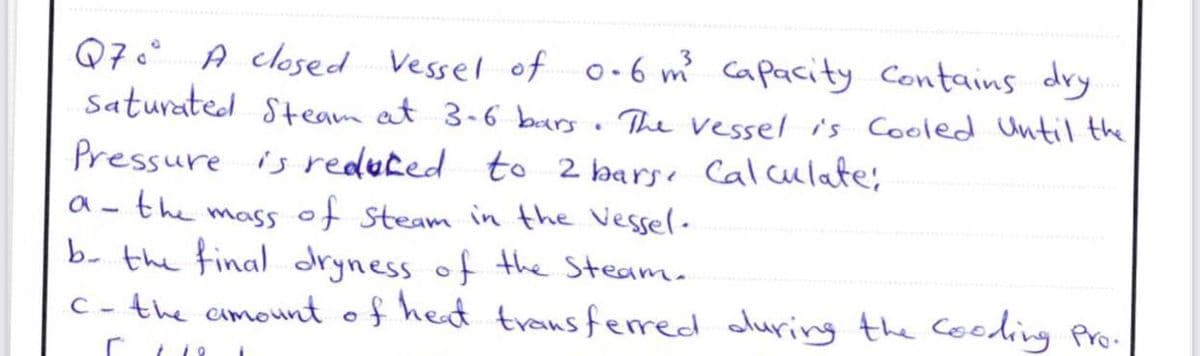 Q7: A closed Vessel of 0.6 m³ capacity Contains dry
saturated Steam at 3.6 bars. The vessel is Cooled Until the
Pressure is reduced to 2 bars. Calculate;
a- the mass of steam in the vessel.
b- the final dryness of the Steam.
c- the amount of heat transferred during the Cooling Pro.